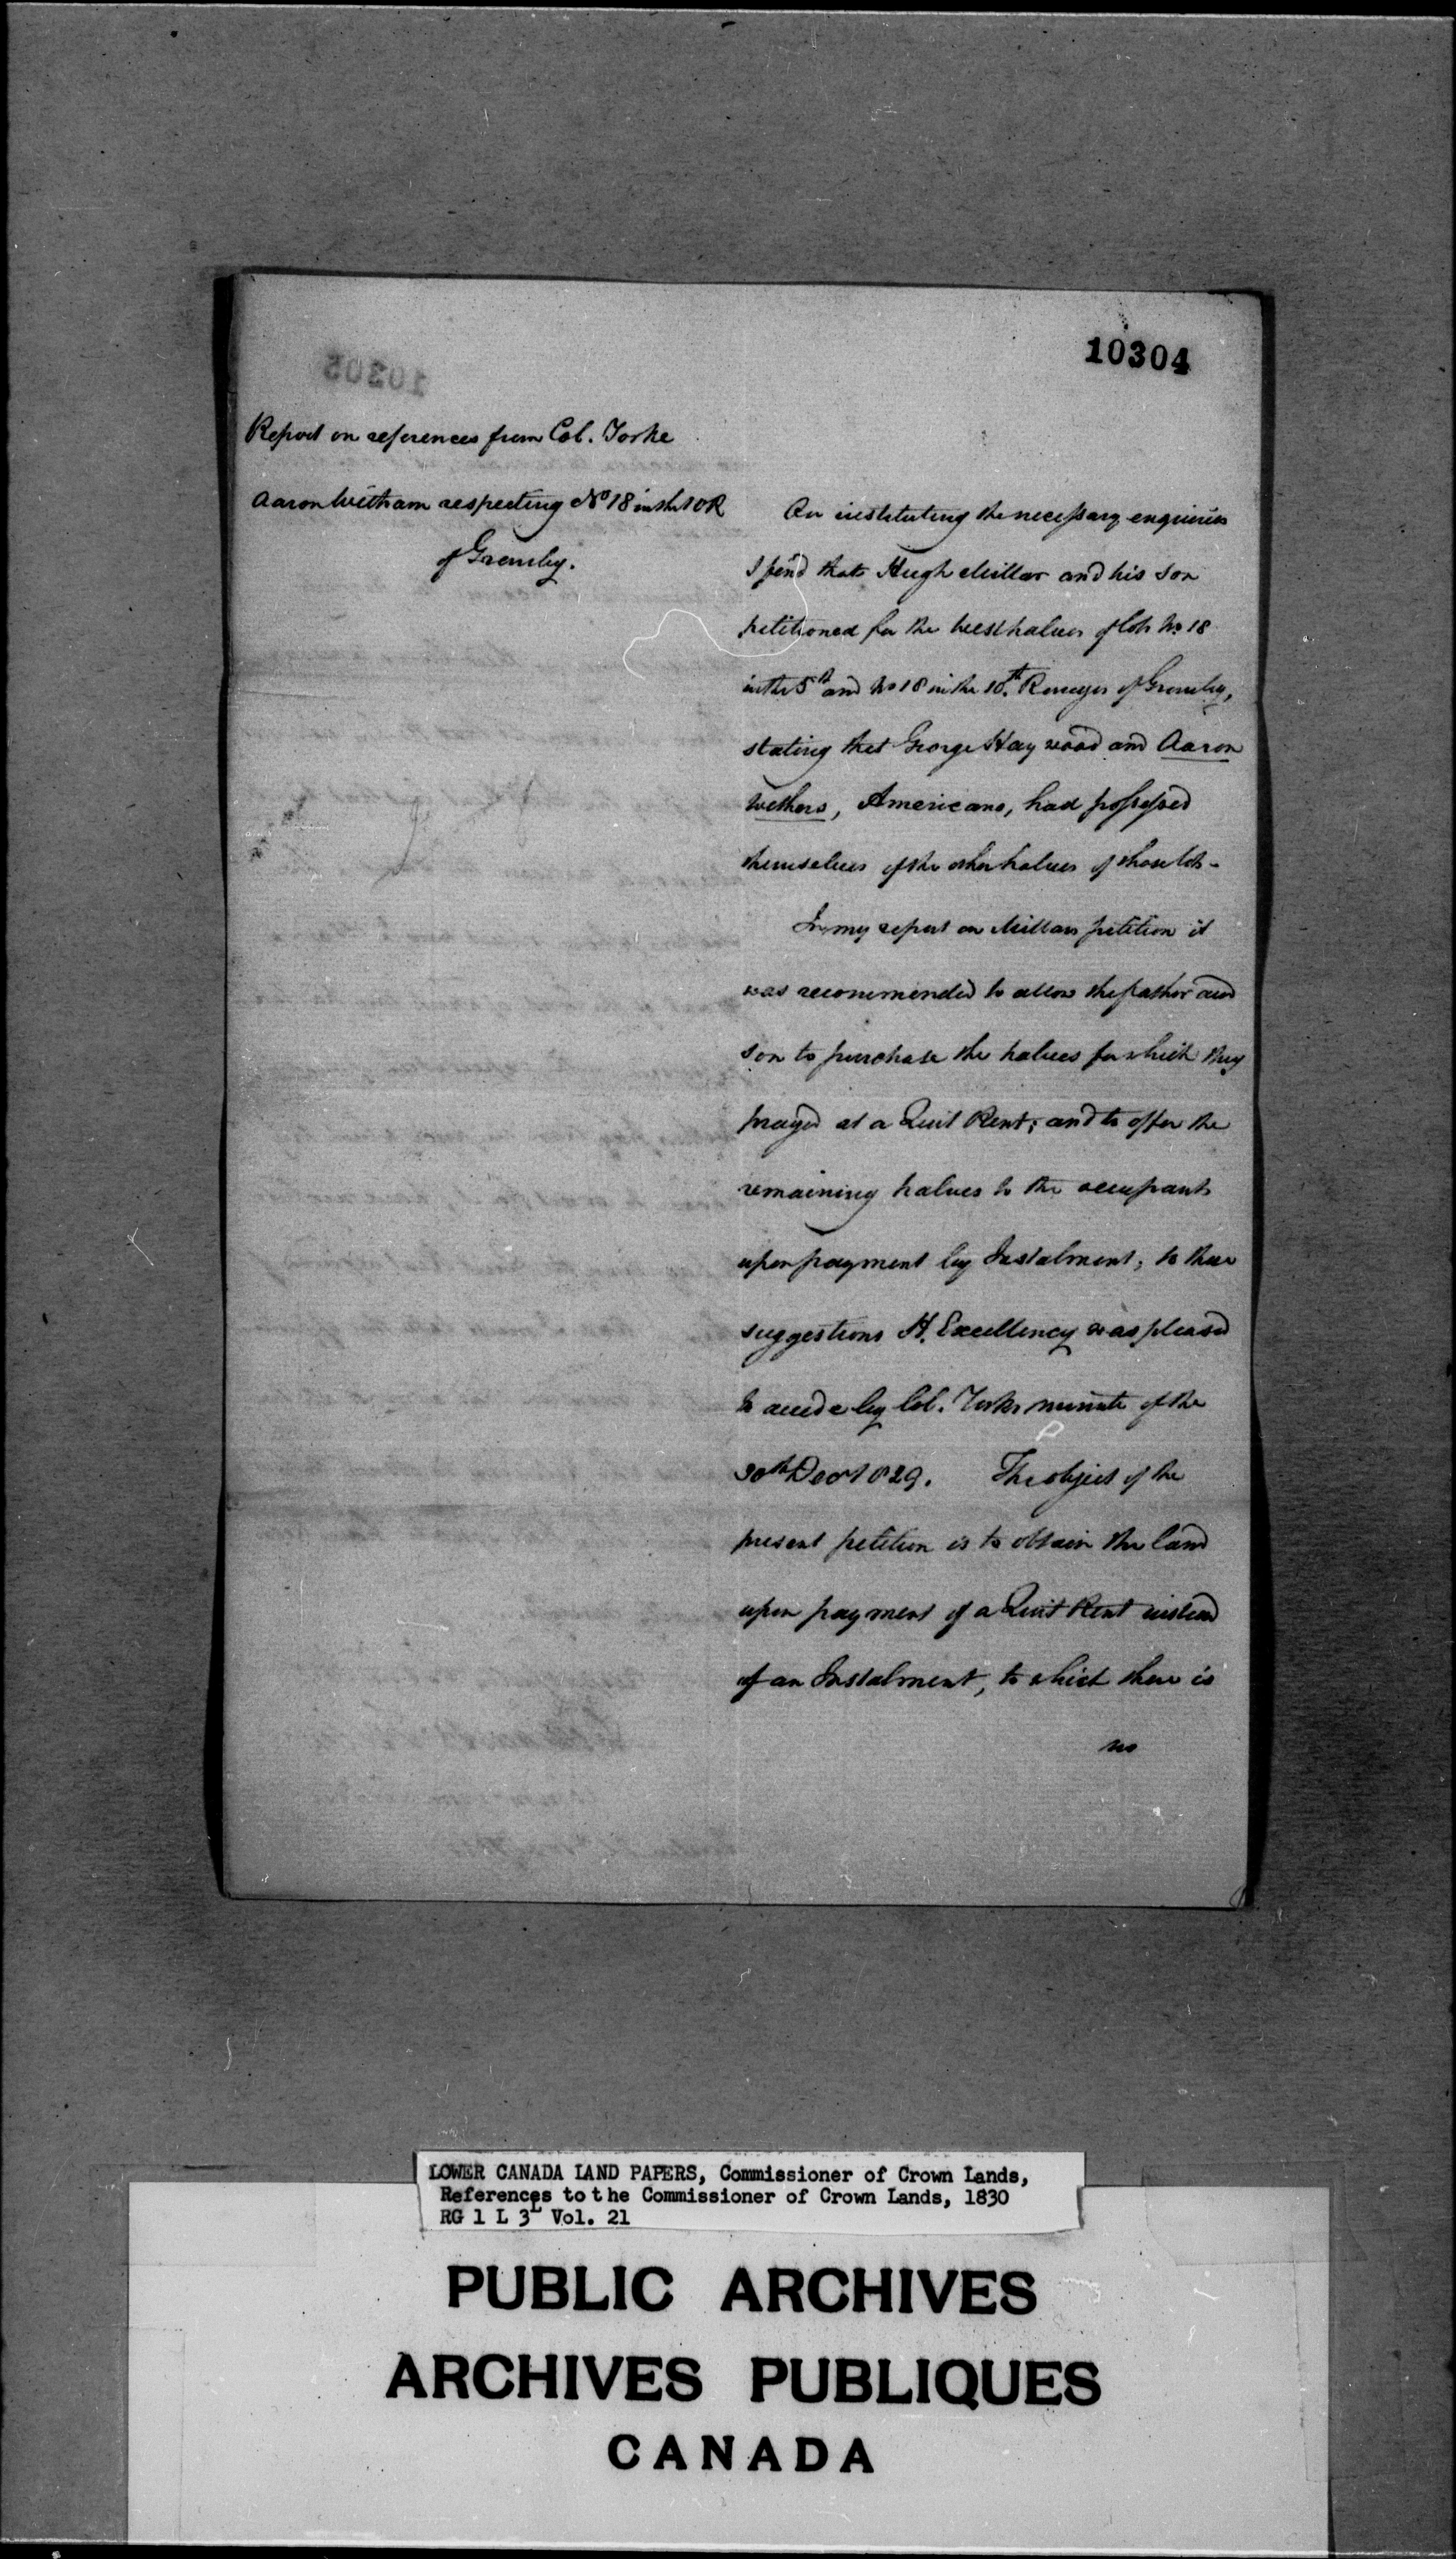 10304
Report on references from Col. Yorke
Aaron Witham respecting No 18 in the 10 R
of Grenville.
On instituting the necessary enquiries
I find that Hugh Millar and his son
petitioned for the West halves of lots No 18
in the 5th and No 18 in the 10th Ranges of
stating that George Haywood and Aaron
Withers, Americans, had possessed
themselves of the other halves of those lots -
In my report on Millars petition it
was recommended to allow the father and
son to purchase the halves for which they
prayed at a Quit Rent; and to offer the
remaining halves to the occupants
upon payment by Instalment; to these
suggestions H. Excellency was pleased
to accede by Col. Yorkes minute of the
30th Decr 1829. The object of the
present petition is to obtain the land
upon payment of a Quit Rent instead
of an Instalment, to which there is
no
LOWER CANADA LAND PAPERS, Commissioner of Crown Lands,
References to the Commissioner of Crown Lands, 1830
RG 1 L 3L Vol. 21
PUBLIC ARCHIVES
ARCHIVES PUBLIQUES
CANADA